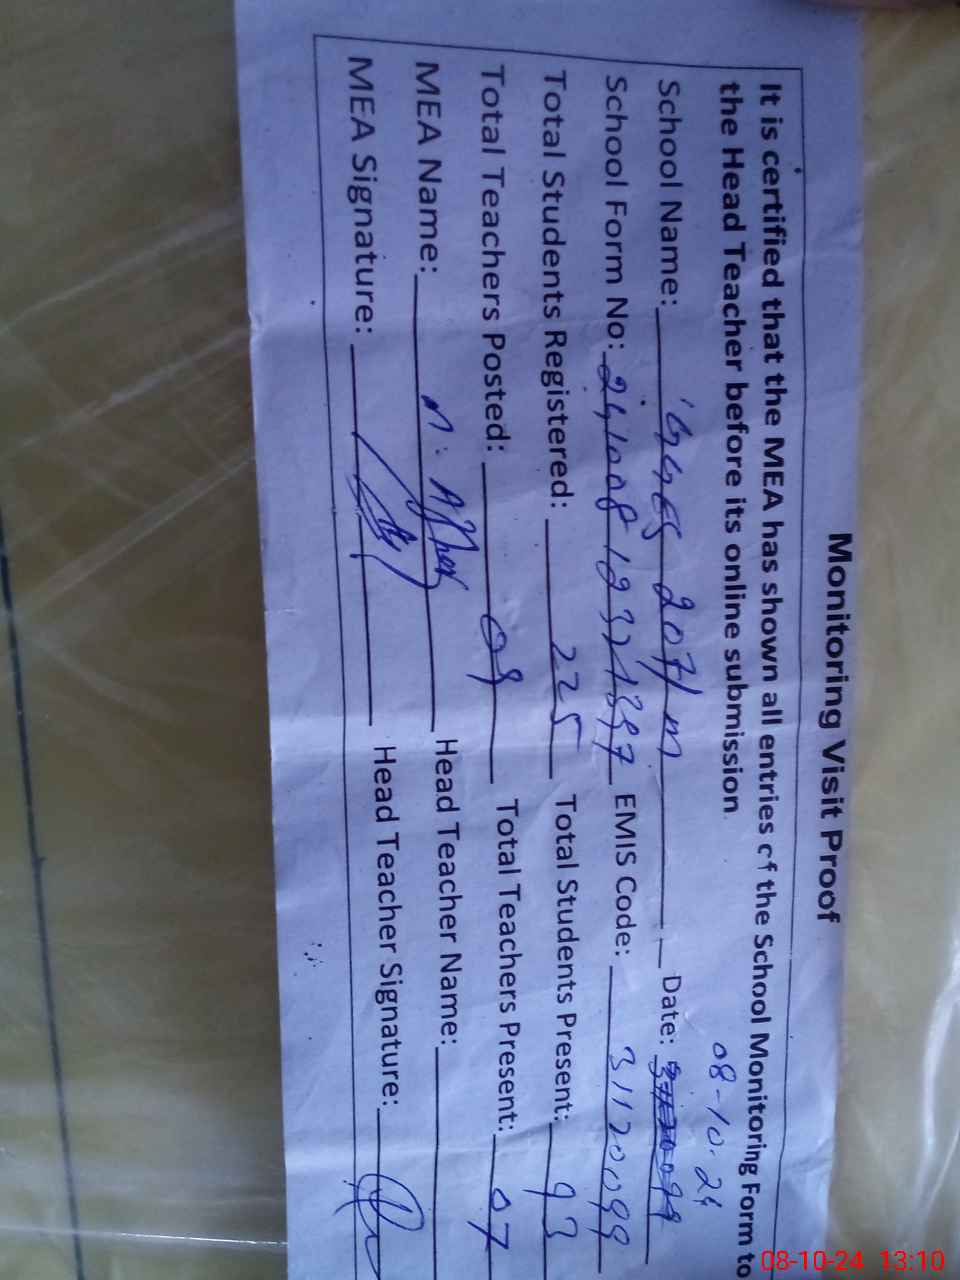 Monitoring Visit Proof
It is certified that the MEA has shown all entries of the School Monitoring Form to
the Head Teacher before its online submission
08-10-24
School Name: 207/ m Date:
School Form No: EMIS Code: 31120099
Total Students Registered: 225 Total Students Present: 93
Total Teachers Posted: 09 Total Teachers Present: 07
MEA Name: Head Teacher Name:
MEA Signature: Head Teacher Signature:
08-10-24 13:10